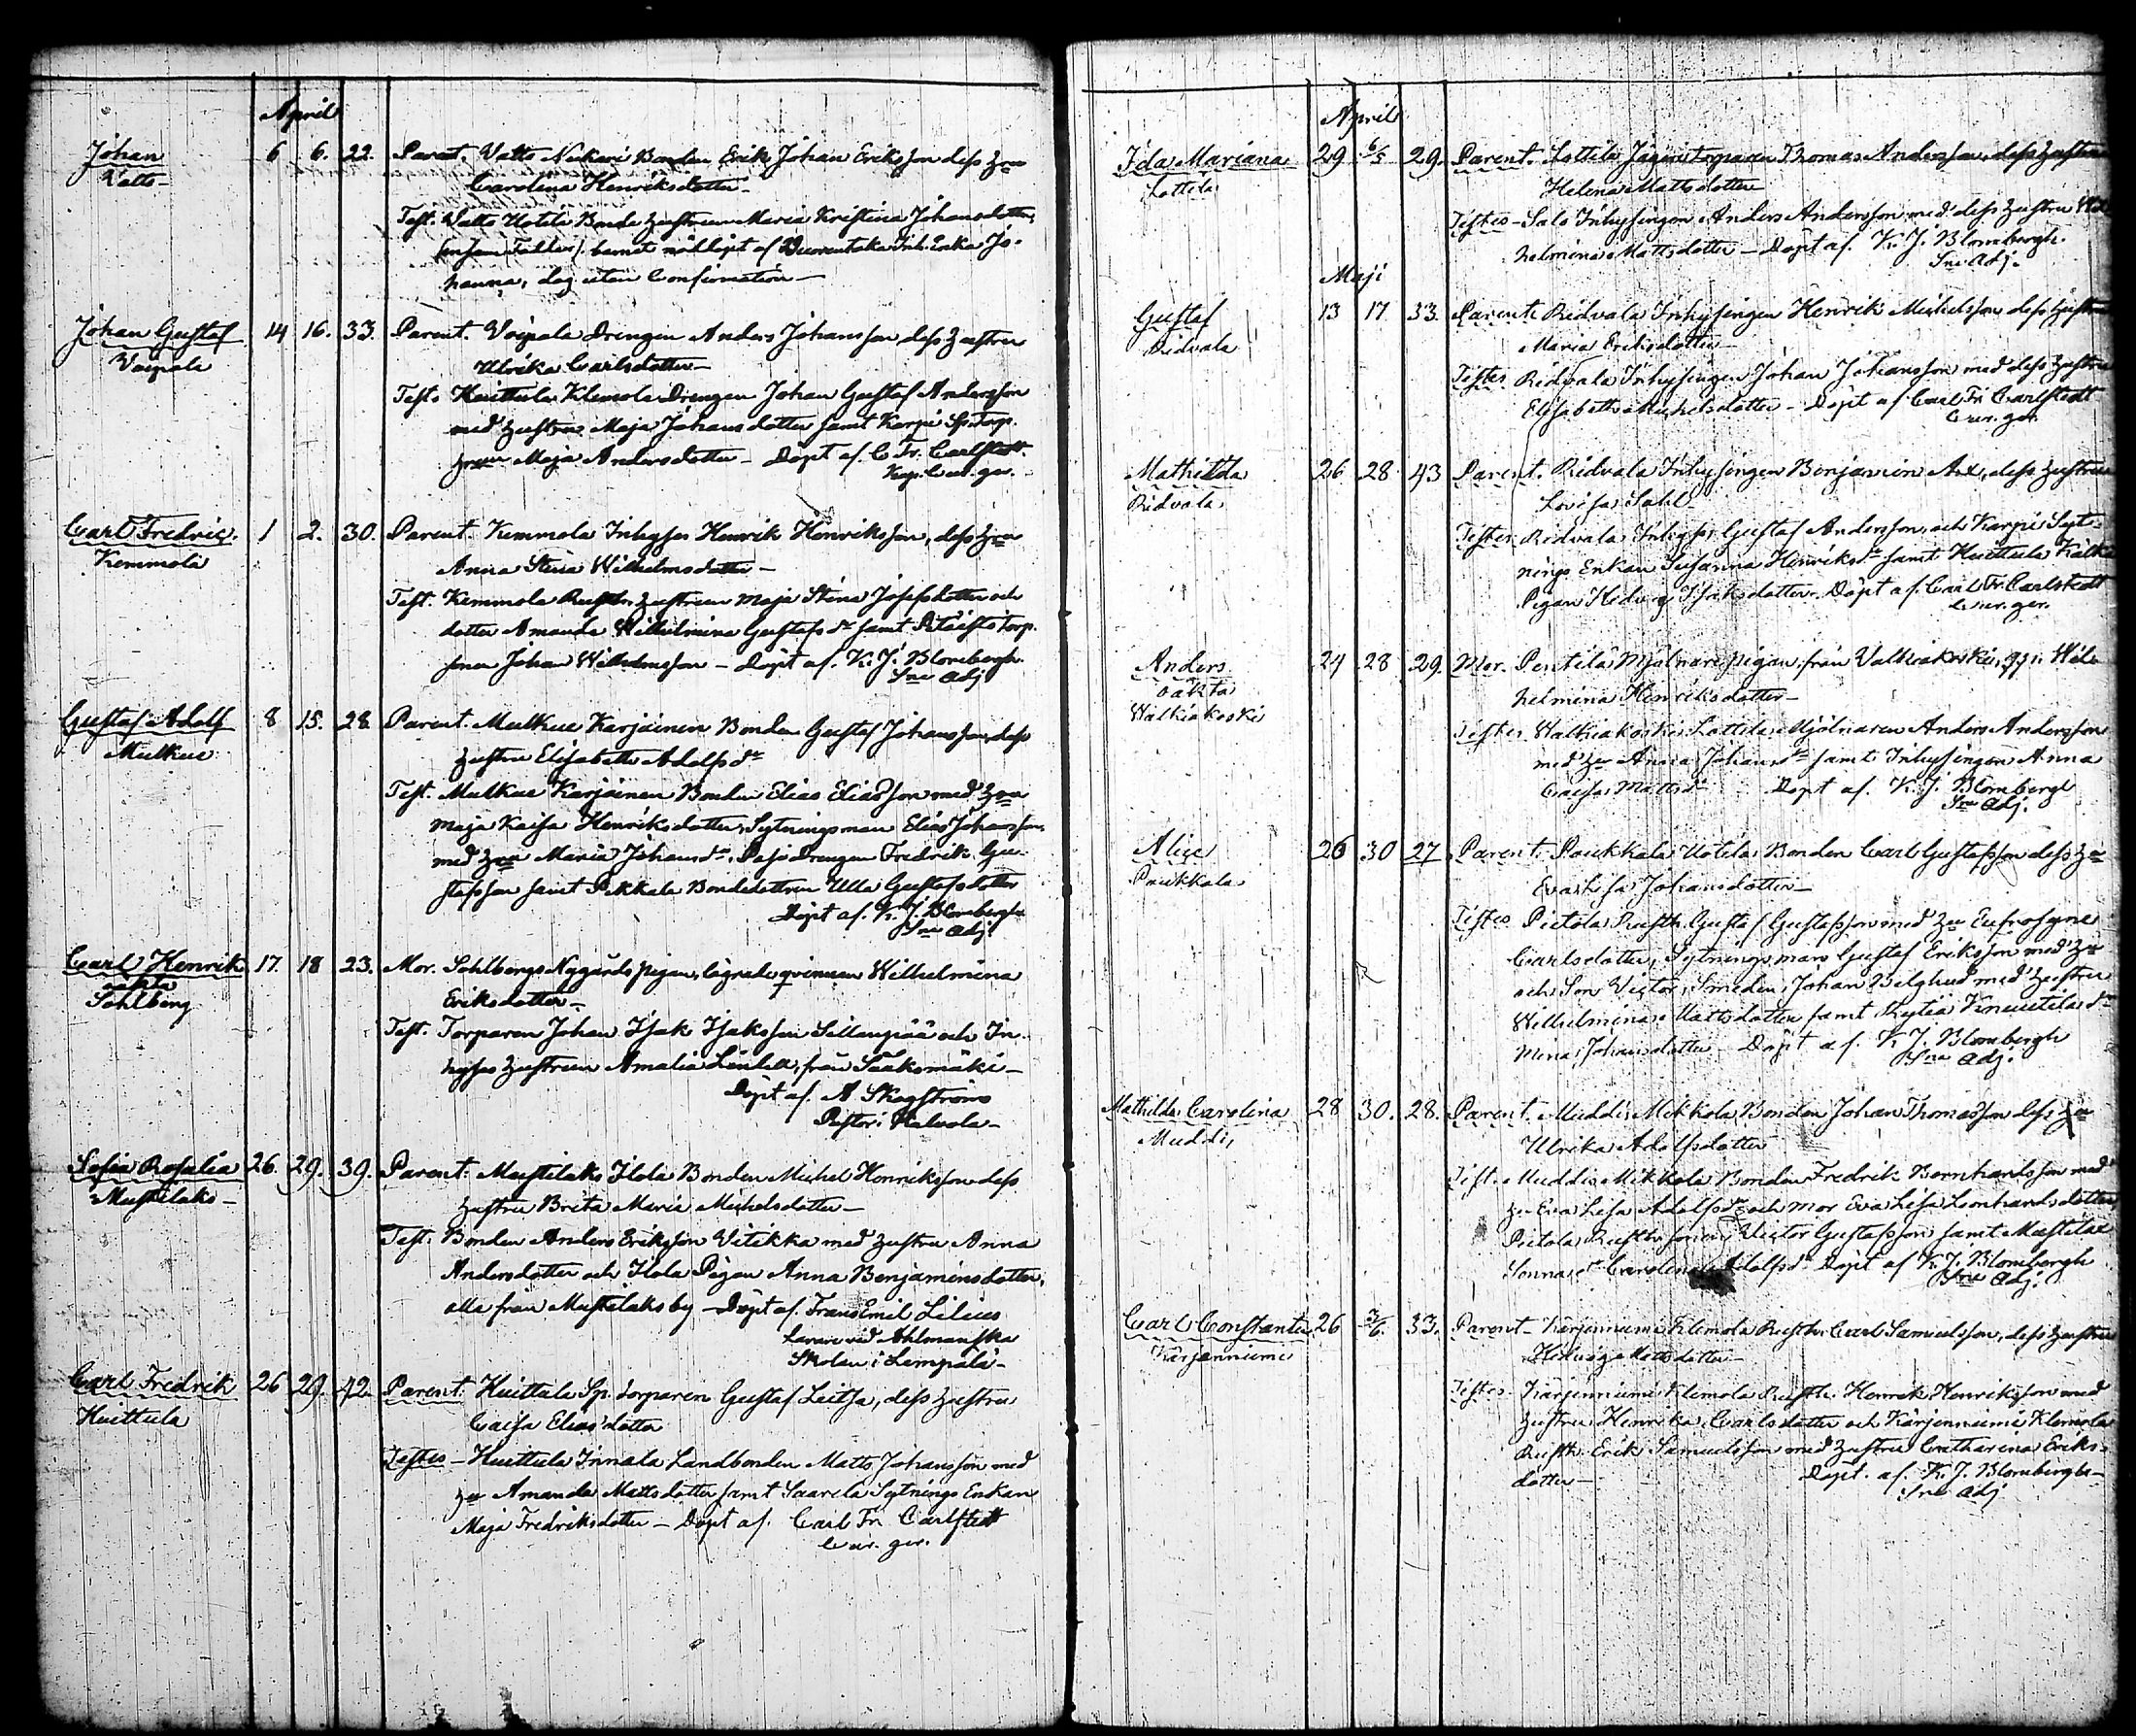 April
Johan 6 6. 22. Parent. Vatto Nukari Bonden Erik Johan Eriksson dess Hru
Vatto Carolina Henriksdotter
Test. Vatto Uotila Bonde hustrun Maria Kristina Johansdotter,
barnet nöddöpt af Inh. Enka Jo-
hanna, dog utan Confirmation
Johan Gustaf 14 16. 33. Parent. Voipala Drengen Anders Johansson, dess hustru
Voipala Ulrika Carlsdotter
Test. Huittula Klemola Drengen Johan Gustaf Andersson
med hustru Maja Johansdotter samt Karpi Sp. Torp.
Maja Andersdotter – Döpt af C. Fr. Carlstedt.
Carl Fredric. 1 2. 30. Parent. Kemmola Inhyses Henrik Henriksson, dess Hru
Kemmola Anna Stina Wilhelmsdotter
Test. Kemmola Rusth. hustrun Maja Stina Josefsdotter och
dotter Amanda Wilhelmina Gustafs dr samt torp.
sonen Johan Wilhelmsson – Döpt af. K. J. Blombergh.
Sne Adj.
Gustaf Adolf 8 15. 28 Parent. Mulkue Karjainen Bonden Gustaf Johansson, dess
Mulkue hustru Elisabeth Adolfs dr
Test. Mulkue Karjainen Bonden Elias Eliasson med Hru
Maja Kaisa Henriksdotter, Sytningsman Elias Johansson,
med Hru Maria Johans dr, Drengen Fredrik Gu-
stafsson samt Pekkala Bondedottren Ulla Gustafsdotter
Döpt af. K. J. Blombergh
Sne Adj.
Carl Henrik 17. 18 23. Mor. Sohlbergs Nygårds pigan, lägrade qvinnan Wilhelmina
oäkta Eriksdotter
Sohlberg
Test. Torparen Johan Isak Isaksson Sillanpää och In-
hyses hustrun Amalia från Sääksmäki
Döpt af. A Skogström
Pastor i Kalvola
Sofia Rosalia 26. 29. 39. Parent: Mustilaks Ilola Bonden Michel Henriksson dess
Mustilaks hustru Brita Maria Michelsdotter
Test. Bonden Anders Eriksson Vitikka med hustru Anna
Andersdotter och Ilola Pigan Anna Benjaminsdotter,
alla från Mustilaks by – Döpt af. Frans Emil Lilius
Lärare vid Ahlmanska
Skolan i Lempälä
Carl Fredrik 26 29. 42. Parent: Huittula Sp. torparen Gustaf Leitsa, dess hustru
Huittula Caisa Eliasdotter
Testes – Huittula Innala Landbonden Matts Johansson med
Hu Amanda Mattsdotter samt Saarela Sytnings Enkan
Maja Fredriksdotter – Döpt af. Carl Fr. Carlstedt
Cur. ger.
April
Ida Mariana 29 6/5 29. Parent. Lottila Jägaretorparen Thomas Andersson, dess hustru
Lottila Helena Mattsdotter
Testes – Salo Inhysingen Anders Andersson med dess hustru Wil-
helmina Mattsdotter – Döpt af. K. J. Blombergh.
Sne Adj.
Maji
Gustaf 13 17 33. Parent. Ridvala Inhysingen Henrik Michelsson dess hustru
Ridvala Maria Eriksdotter
Testes Ridvala Inhysingen Johan Johansson med dess hustru
Elisabeth Michelsdotter – Döpt af Carl Fr. Carlstedt
Cur. ger.
Mathilda 26 28 43 Parent. Ridvala Inhysingen Benjamin Ax, dess hustru
Ridvala Lovisa Sahl
Testes Ridvala Inhyses Gustaf Andersson, och Karpi Syt-
nings Enkan Susanna Henriks dr samt Huittula
Pigan Hedvig Isaksdotter. Döpt af. Carl Fr. Carlstedt
Cur. ger.
Anders 24 28 29. Mor. Pentilä Mjölnarepigan från Valkiakoski, Wil-
oäkta helmina Henriksdotter
Walkiakoski
Testes Walkiakoski Lottila Mjölnaren Anders Andersson
med Hu Anna Johans dr samt Inhysingen Anna
Caisa Matts dr Döpt af. K. J. Blombergh
Sne Adj.
Alice 26 30 27 Parent. Paukkala Uotila Bonden Carl Gustafsson dess Hu
Paukkala Eva Lisa Johansdotter
Testes Pietola Rusth. Gustaf Gustafsson med Hu Eufrosyne
Carlsdotter, Sytningsman Gustaf Eriksson med Hu
och Son Victor, Smeden Johan med hustru
Wilhelmina Mattsdotter samt Kylia Knuutila dr
Mina Johansdotter Döpt af. K. J. Blombergh
Sne Adj.
Mathilda Carolina 28 30. 28. Parent. Muddis Mikkola Bonden Johan Thomasson dess Hu
Muddis Ulrika Adolfsdotter
Test. Muddis Mikkola Bonden Fredrik Bernhardsson med
Hu Eva Lisa Adolfs dr och mor Eva Lisa Leonhardsdotter
Pietola Rusth. sonen Victor Gustafsson samt Mustila
Carolina Adolfs dr Döpt af K. J. Blombergh
Sne Adj.
Carl Constantin 26 3/6. 33. Parent – Kärjenniemi Klemola Rusth. Carl Samuelsson, dess hustru
Kärjenniemi Hedvig Mattsdotter
Testes Kärjenniemi Klemola Rusth. Henrik Henriksson med
hustru Henrika Carlsdotter och Kärjenniemi Klemola
Rusth. Erik Samuelsson med hustru Catharina Eriks-
dotter – Döpt. af. K. J. Blombergh
Sne Adj